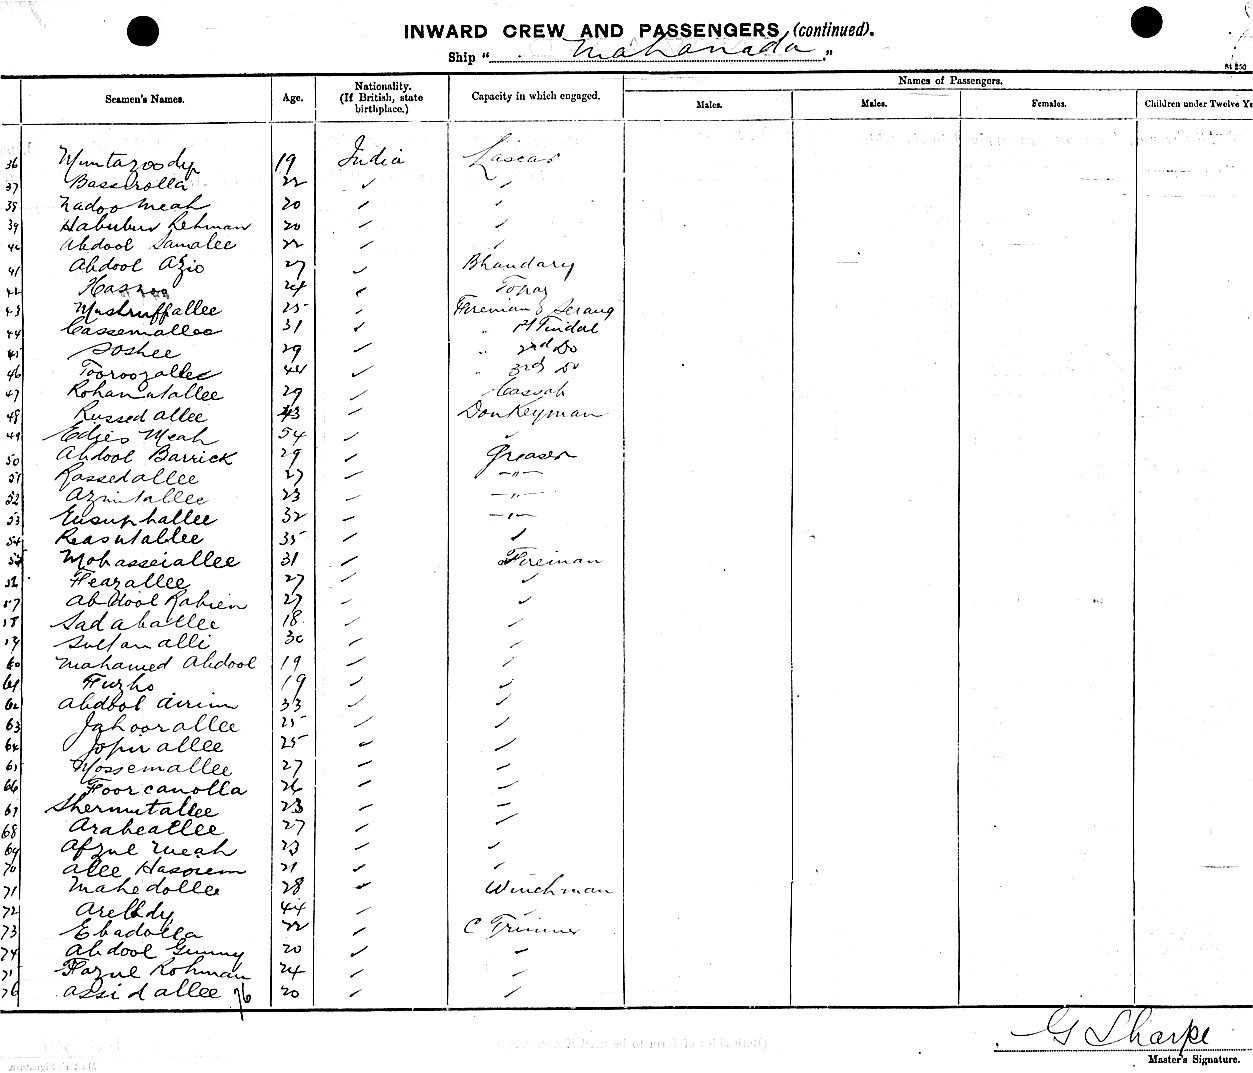 INWARD CREW AND PASSENGERS (continued).
Ship " Mahanada ."
Seamen's Names. Age. Nationality. (If British, state birthplace.) Capacity in which engaged. Names of Passengers.
Males. Males. Females. Children under Twelve Ye
36 Mumtazoody 19 India Lascar
37 Bassirolla 22 ✓ ✓
38 Nadoo Meah 20 ✓ ✓
39 Habubur Rehman 20 ✓ ✓
40 Abdool Samalee 22 ✓ ✓
41 Abdool Azio 27 ✓ Bhandary
42 24 ✓ Topaz
43 Mushruffallee 25 ✓ Fireman's Serang
44 Cassemallee 31 ✓ " Tindal
45 Soshee 29 ✓ " 2nd Do
46 Tooroozallee 44 ✓ " 3rd Do
47 Rohamatallee 29 ✓ Cassab
48 Russed allee 43 ✓ Donkeyman
49 Edris Meah 54 ✓ ✓
50 Abdool Barrick 29 ✓ Greaser
51 Rassedallee 27 ✓ —"—
52 Azmutallee 23 ✓ —"—
53 Eusuphallee 32 ✓ —"—
54 Reasutallee 35 ✓ ✓
55 Mobasseiallee 31 ✓ Fireman
56 Feazallee 27 ✓ ✓
57 Abdool Rahien 27 ✓ ✓
58 Sadabatlee 18 ✓ ✓
59 Sultan alli 30 ✓ ✓
60 Mahamed Abdool 19 ✓ ✓
61 19 ✓ ✓
62 Abdool 33 ✓ ✓
63 Jahoorallee 25 ✓ ✓
64 Jopirallee 25 ✓ ✓
65 Mossemallee 27 ✓ ✓
66 Foorcanolla 26 ✓ ✓
67 Shermutallee 23 ✓ ✓
68 Arabeatlee 27 ✓ ✓
69 Afzul Meah 23 ✓ ✓
70 Alee Hassiem 21 ✓ ✓
71 Mahedollee 28 ✓ Winchman
72 44 ✓ ✓
73 Ebadolla 22 ✓ C Trimmer
74 Abdool Gunny 20 ✓ ✓
75 Fazul Rohman 24 ✓ ✓
76 Assidallee 76 20 ✓ ✓
G Sharpe
Master's Signature.